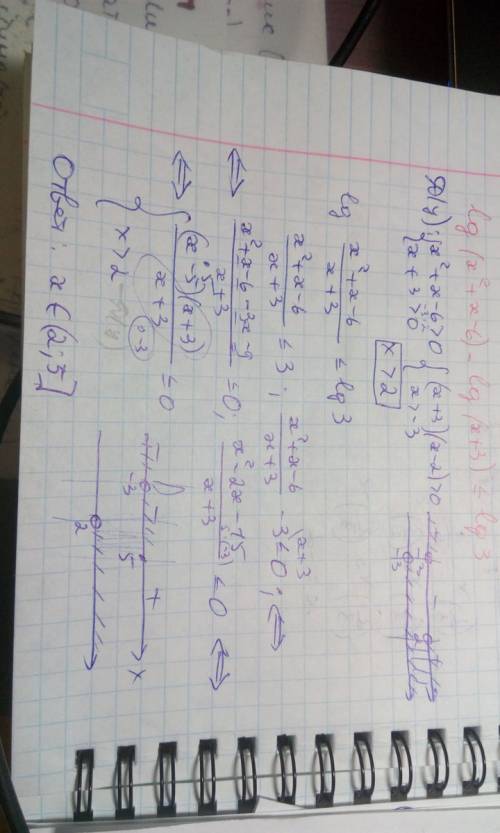 lg(x²+x-6) - lg(x+3) ≤ lg 3
D(y): { x²+x-6>0 { (x+3)(x-2)>0
x+3>0 x>-3
x>2
-3 - 2 +
-3
lg (x²+x-6)/(x+3) ≤ lg 3
(x²+x-6)/(x+3) ≤ 3; (x²+x-6)/(x+3) - 3 ≤ 0; ⇔
⇔ (x²+x-6-3x-9)/(x+3) ≤ 0; (x²-2x-15)/(x+3) ≤ 0 ⇔
⇔ { (x-5)(x+3)/(x+3) ≤ 0
x>2
-3 - 5 + x
2
Ответ: x ∈ (2; 5]